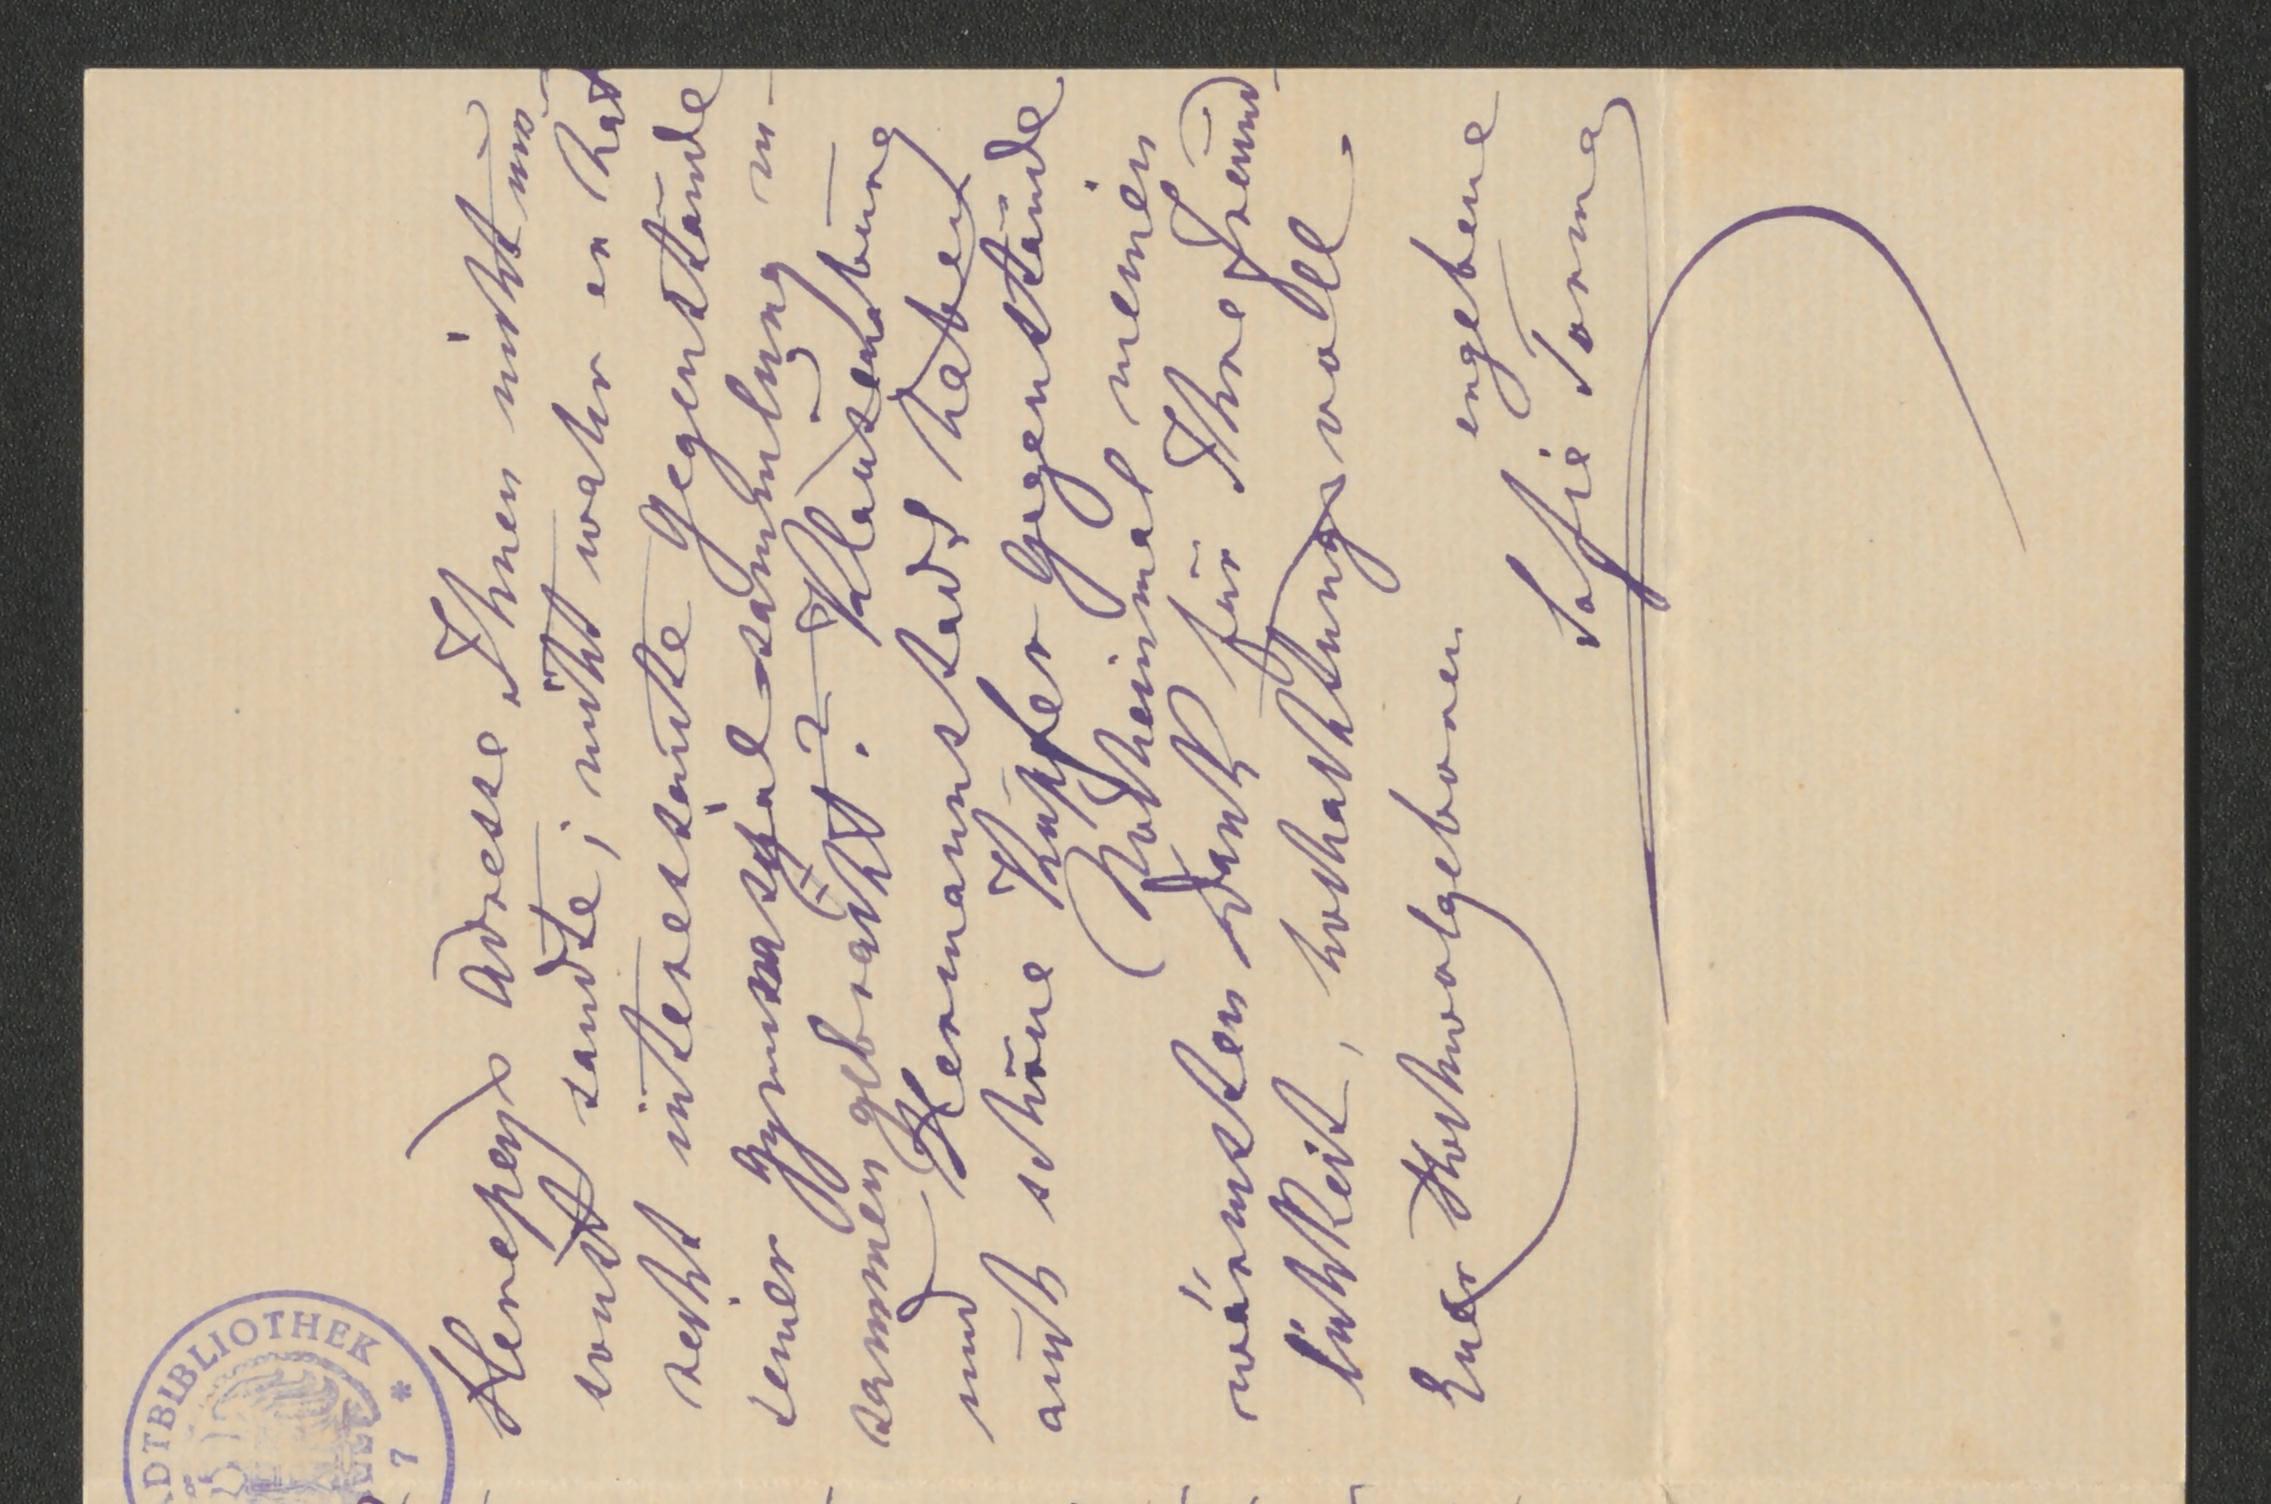 Herepeys Adresse Ihnen nicht um-
sonst sandte; nicht wahr er hat
recht interessante Gegenstände
seiner Gymnasyalsammlung zu-
sammengebracht? Klausenburg
und Hermannstadt haben
auch schöne Kupfer Gegenstände
Nocheinmal meinen
wärmsten Dank für Ihre Freund-
lichkeit, hochachtungsvoll
Euer Hochwolgeboren
ergebene
Sofie Torma
ADTBIBLIOTHEK * 7